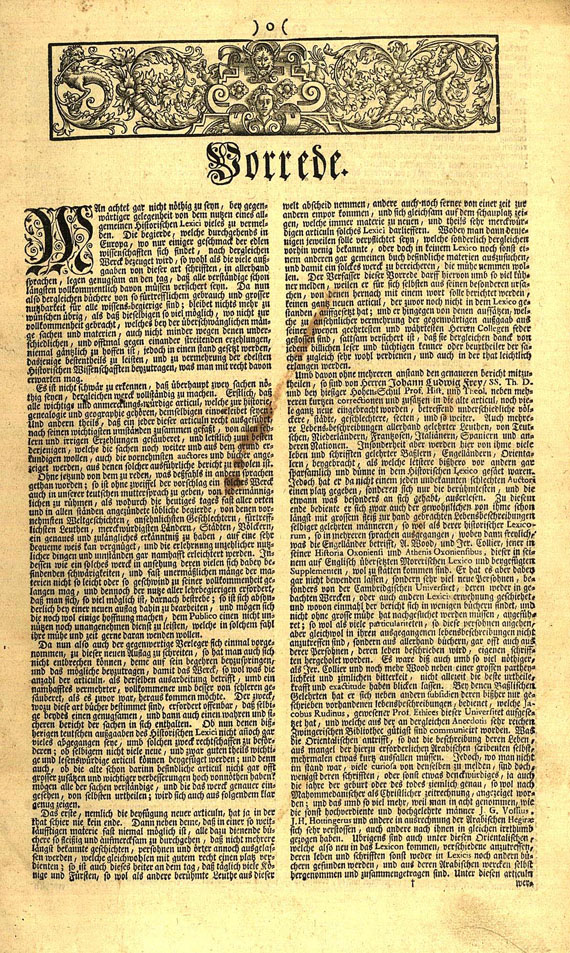 ) o (
Vorrede.
MAn achtet gar nicht nöthig zu seyn, bey gegen-
wärtiger gelegenheit von dem nutzen eines all-
gemeinen Historischen Lexici vieles zu vermel-
den. Die begierde, welche durchgehends in
Europa, wo nur einiger geschmack der edlen
wissenschafften sich findet, nach dergleichen
Werck bezeuget wird, so wohl als die viele auß-
gaaben von dieser art schrifften, in allerhand
sprachen, legen genugsam an den tag, daß alle verständige schon
längsten vollkommentlich davon müssen versichert seyn. Da nun
also dergleichen büchere von so fürtrefflichem gebrauch und grosser
nutzbarkeit für alle wissens-begierige sind; bleibet nichts mehr zu
wünschen übrig, als daß dieselbigen so viel möglich, wo nicht zur
vollkommenheit gebracht, welches bey der überschwänglichen män-
ge sachen und materien, auch nicht minder wegen denen under-
schiedlichen, und offtmal gegen einander streitenden erzehlungen,
niemal gäntzlich zu hoffen ist, jedoch in einen stand gesetzt werden,
dasjenige bestentheils zu leisten, und zu vermehrung der edelsten
Historischen Wissenschafften beyzutragen, was man mit recht davon
erwarten mag.
Es ist nicht schwär zu erkennen, daß überhaupt zwey sachen nö-
thig seyen, dergleichen werck vollständig zu machen. Erstlich, daß
alle wichtige und anmerckungs-würdige articul, welche zur historie,
genealogie und geographie gehören, demselbigen einverleibt seyen:
Und anders theils, daß ein jeder dieser articul recht ausgearbeitet,
nach seinen wichtigsten umständen zusammen gefaßt, von allen feh-
lern und irrigen Erzehlungen gesäuberet, und letstlich zum nutzen
derjenigen, welche die sachen noch weiter und aus dem grund er-
kundigen wollen, auch die vornehmsten auctores und bücher ange-
zeiget werden, aus denen solcher ausführliche bericht zu finden ist.
Ohne jetzund von dem zu reden, was deßfalls in andern sprachen
gethan worden; so ist ohne zweiffel der vorschlag ein solches Werck
auch in unserer teutschen mutter-sprach zu geben, von jedermännig-
lichen zu rühmen, als wodurch die heutiges tags fast aller orten
und in allen ständen angezündete löbliche begierde, von denen vor-
nehmsten Weltgeschichten, ansehnlichsten Geschlechtern, fürtreff-
lichsten Leuthen, merckwürdigsten Ländern, Städten, Völckern,
ein genaues und zulängliches erkänntniß zu haben, auf eine sehr
bequeme weis kan vergnüget, und die erlehrnung unzehlicher nutz-
licher dingen und umständen gar namhafft erleichtert werden. In-
dessen wie ein solches werck in ansehung deren vielen sich dabey be-
findenden schwärigkeiten, und fast unermäßlichen mänge der ma-
terien nicht so leicht oder so geschwind zu seiner vollkommenheit ge-
langen mag, und dennoch der nutz aller lehrbegierigen erfordert,
daß man sich, so viel möglich ist, darnach bestrebe; so ist sich abson-
derlich bey einer neuen auflag dahin zu bearbeiten, und mögen sich
die noch wol einige hoffnung machen, dem Publico einen nicht un-
nutzen noch unangenehmen dienst zu leisten, welche in solchem fahl
ihre mühe und zeit gerne daran wenden wollen.
Da nun also auch der gegenwärtige Verleger sich einmal vorge-
nommen, zu dieser neuen Auflag zu schreiten, so hat man auch sich
nicht entbrechen können, deme auf sein begehren beyzuspringen,
und das mögliche beyzutragen, damit das Werck, so wol was die
anzahl der articuln, als derselben ausarbeitung betrifft, und ein
namhafftes vermehrter, vollkommener und besser von fehlern ge-
säubert, als es zuvor war, heraus kommen möchte. Der zweck,
wozu diese art bücher bestimmt sind, erfordert offenbar, daß selbi-
ge beydes einen genugsamen, und dann auch einen wahren und si-
chern bericht der sachen in sich enthalten. Ob nun denen biß-
herigen teutschen außgaaben des Historischen Lexici nicht annoch gar
vieles abgegangen seye, und solchen zweck rechtschaffen zu beför-
deren; ob selbigen nicht viele neue, und zwar guten theils wichti-
ge und lesenswürdige articul können beygefüget werden; und denn
auch, ob die alte schon darinn befindliche articul nicht gar offt
grosser zusätzen und wichtiger verbesserungen hoch vonnöthen haben?
mögen alle der sachen verständige, und die das werck genauer ein-
gesehen, von selbsten urtheilen; wird sich auch aus folgendem klar
genug zeigen.
Das erste, nemlich die beyfügung neuer articuln, hat ja in der
that schier nie kein ende. Dann neben dem, daß in einer so weit-
läufftigen materie fast niemal möglich ist, alle dazu dienende bü-
cher so fleißig und aufmercksam zu durchgehen, daß nicht mehrere
längst bekante geschichten, personen und örter annoch ausgelas-
sen werden, welche gleichwohlen mit gutem recht einen platz ver-
dienten; so ist auch dieses beiter an dem tag, daß täglich viele Kö-
nige und Fürsten, so wol als andere berühmte Leuthe aus dieser
welt abscheid nemmen, andere auch noch ferner von einer zeit zur
andern empor kommen, und sich gleichsam auf dem schauplatz zei-
gen, welche immer materie zu neuen, und theils sehr merckwür-
digen articuln solches Lexici darlieffern. Wobey man dann denje-
nigen zuweilen sehr verpflichtet seyn, welche sonderlich dergleichen
vorhin wenig bekannte, oder doch in keinem Lexico noch sonst ei-
nem anderen gar gemeinen buch befindliche materien auszusuchen,
und damit ein solches werck zu bereichern, die mühe nemmen wol-
len. Der Verfasser dieser Vorrede darff hiervon umb so viel küh-
ner melden, weilen er für sich selbsten aus seinen besonderen ursa-
chen, von deren hernach mit einem wort solle berichtet werden,
keinen gantz neuen articul, der zuvor noch nicht in dem Lexico ge-
standen, aufgesetzt hat; und er hingegen von denen aufsätzen, wel-
che zu ansehnlicher vermehrung der gegenwärtigen außgaab aus
seiner zweyen geehrtesten und währtesten Herren Collegen feder
geflossen sind, sattsam versichert ist, daß sie dergleichen danck von
jedem billichen leser und tüchtigen kenner oder beurtheiler der sa-
chen zugleich sehr wohl verdienen, und auch in der that leichtlich
erlangen werden.
Umb davon ohne mehreren anstand den genaueren bericht mitzu-
theilen, so sind von Herren Johann Ludwig Frey / SS. Th. D.
und bey hiesiger Hohen-Schul Prof. Hist. und Theol. neben meh-
reren kurtzen correctionen und zusätzen in die alte articul, noch viele
gantz neue eingebracht worden, betreffend underschiedliche völ-
cker, städte, geschlechtere, secten, und so weiter. Auch mehre-
re Lebens-beschreibungen allerhand gelehrter Leuthen, von Teut-
schen, Niederländern, Frantzosen, Italiänern, Spaniern und an-
deren Nationen. Insonderheit aber werden hier von ihme viele
leben und schrifften gelehrter Baßlern, Engelländern, Orienta-
lern, dergebracht, als welche letstere bißhero vor andern gar
sparsamlich und dünne in dem Historischen Lexico gesäet waren.
Jedoch hat er da nicht einem jeden unbekannten schlechten Auctori
einen platz gegeben, sonderen sich nur die berühmtesten, und die
etwann was besonders an sich gehabt, auserlesen. Zu diesem
ende bediente er sich zwar auch der gewohnlichen von ihme schon
längst mit grossem fleiß zur hand gebrachten Lebens-beschreibungen
selbiger gelehrten männeren, so wol als derer historischer Lexico-
rum, so in mehreren sprachen ausgegangen, wovon dann treulich,
was die Engelländer betrifft, A. Wood, und Jer. Collier, jener in
seiner Historia Oxoniensi und Athenis Oxoniensibus, dieser in sei-
nem auf Englisch übersetzten Morerischen Lexico und beygefügtem
Supplement, wol zu statten kommen sind. Er hat es aber dabey
gar nicht bewenden lassen, sondern sehr viel neue Personen, be-
sonders von der Cambridgischen Universitet, deren weder in ge-
dachten Wercken, oder auch andern Lexicis erwehnung geschiehet,
und wovon einmahl der bericht sich in wenigen büchern findet, und
nicht ohne grosse mühe hat nachgesuchet werden müssen, angefüh-
ret; so wol als viele particularieten, so diese personen angehen,
aber gleichwol in ihren ausgegangenen lebens-beschreibungen nicht
anzutreffen sind, sondern aus allerhand büchern, gar offt auch aus
derer Personen, deren leben beschrieben wird, eigenen schriff-
ten hergeholet worden. Es ware diß auch umb so viel nöthiger,
als Jer. Collier und noch mehr Wood neben einer grossen parthey-
lichkeit und zimlichen bitterkeit, nicht alleweil die beste urtheils-
krafft und exactitude haben blicken lassen. Bey denen Baßlischen
Gelehrten hat er sich neben anderen subsidien deren bißher nur ge-
schrieben vorhandenen lebensbeschreibungen, bedienet, welche Ja-
cobus Rudinus, gewesener Prof. Ethices dieser Universitet aufgese-
tzet hat, und welche aus der an dergleichen Anecdotis sehr reichen
Zwingerischen Bibliothec gütigst sind communicirt worden. Was
die Orientalischen antrifft, so hat die beschreibung deren Leben,
aus mangel der hierzu erforderlichen Arabischen scribenten selbst,
mehrmalen etwas kurtz ausfallen müssen. Jedoch, wo man nicht
im stand war, viele curiosa von denselben zu melden, sind doch
wenigst deren schrifften, oder sonst etwas denckwürdiges, ja auch
die jahre der geburt oder des todes ziemlich genau, so wol nach
Mahommedanischer als Christlicher zeitrechnung, angezeiget wor-
den; und das umb so viel mehr, weil man in acht genommen, wie
die sonst hochverdiente und hochgelehrte männer J. G. Vossius,
J. H. Hottingerus und andere in ausrechnung der Arabischen Hegiræ
sich sehr verstossen, auch andere nach ihnen in gleichen irrthumb
gezogen haben. Ubrigens sind auch unter diesen Orientalischen,
welche also neu in das Lexicon kommen, verschiedene anzutreffen,
deren leben und schrifften sonst weder in Lexicis noch andern bü-
chern gefunden werden, und aus denen Arabischen wercken selbst
hergenommen und zusammengetragen sind. Unter diesen articuln
†
wer-